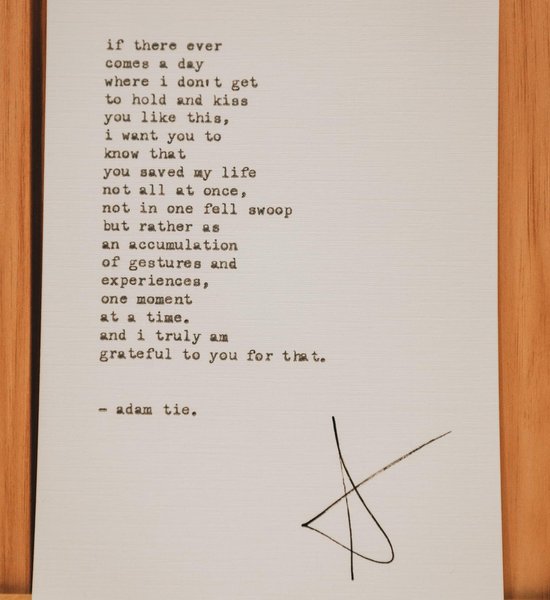 if there ever
comes a day
where i don't get
to hold and kiss
you like this,
i want you to
know that
you saved my life
not all at once,
not in one fell swoop
but rather as
an accumulation
of gestures and
experiences,
one moment
at a time.
and i truly am
grateful to you for that.
- adam tie.